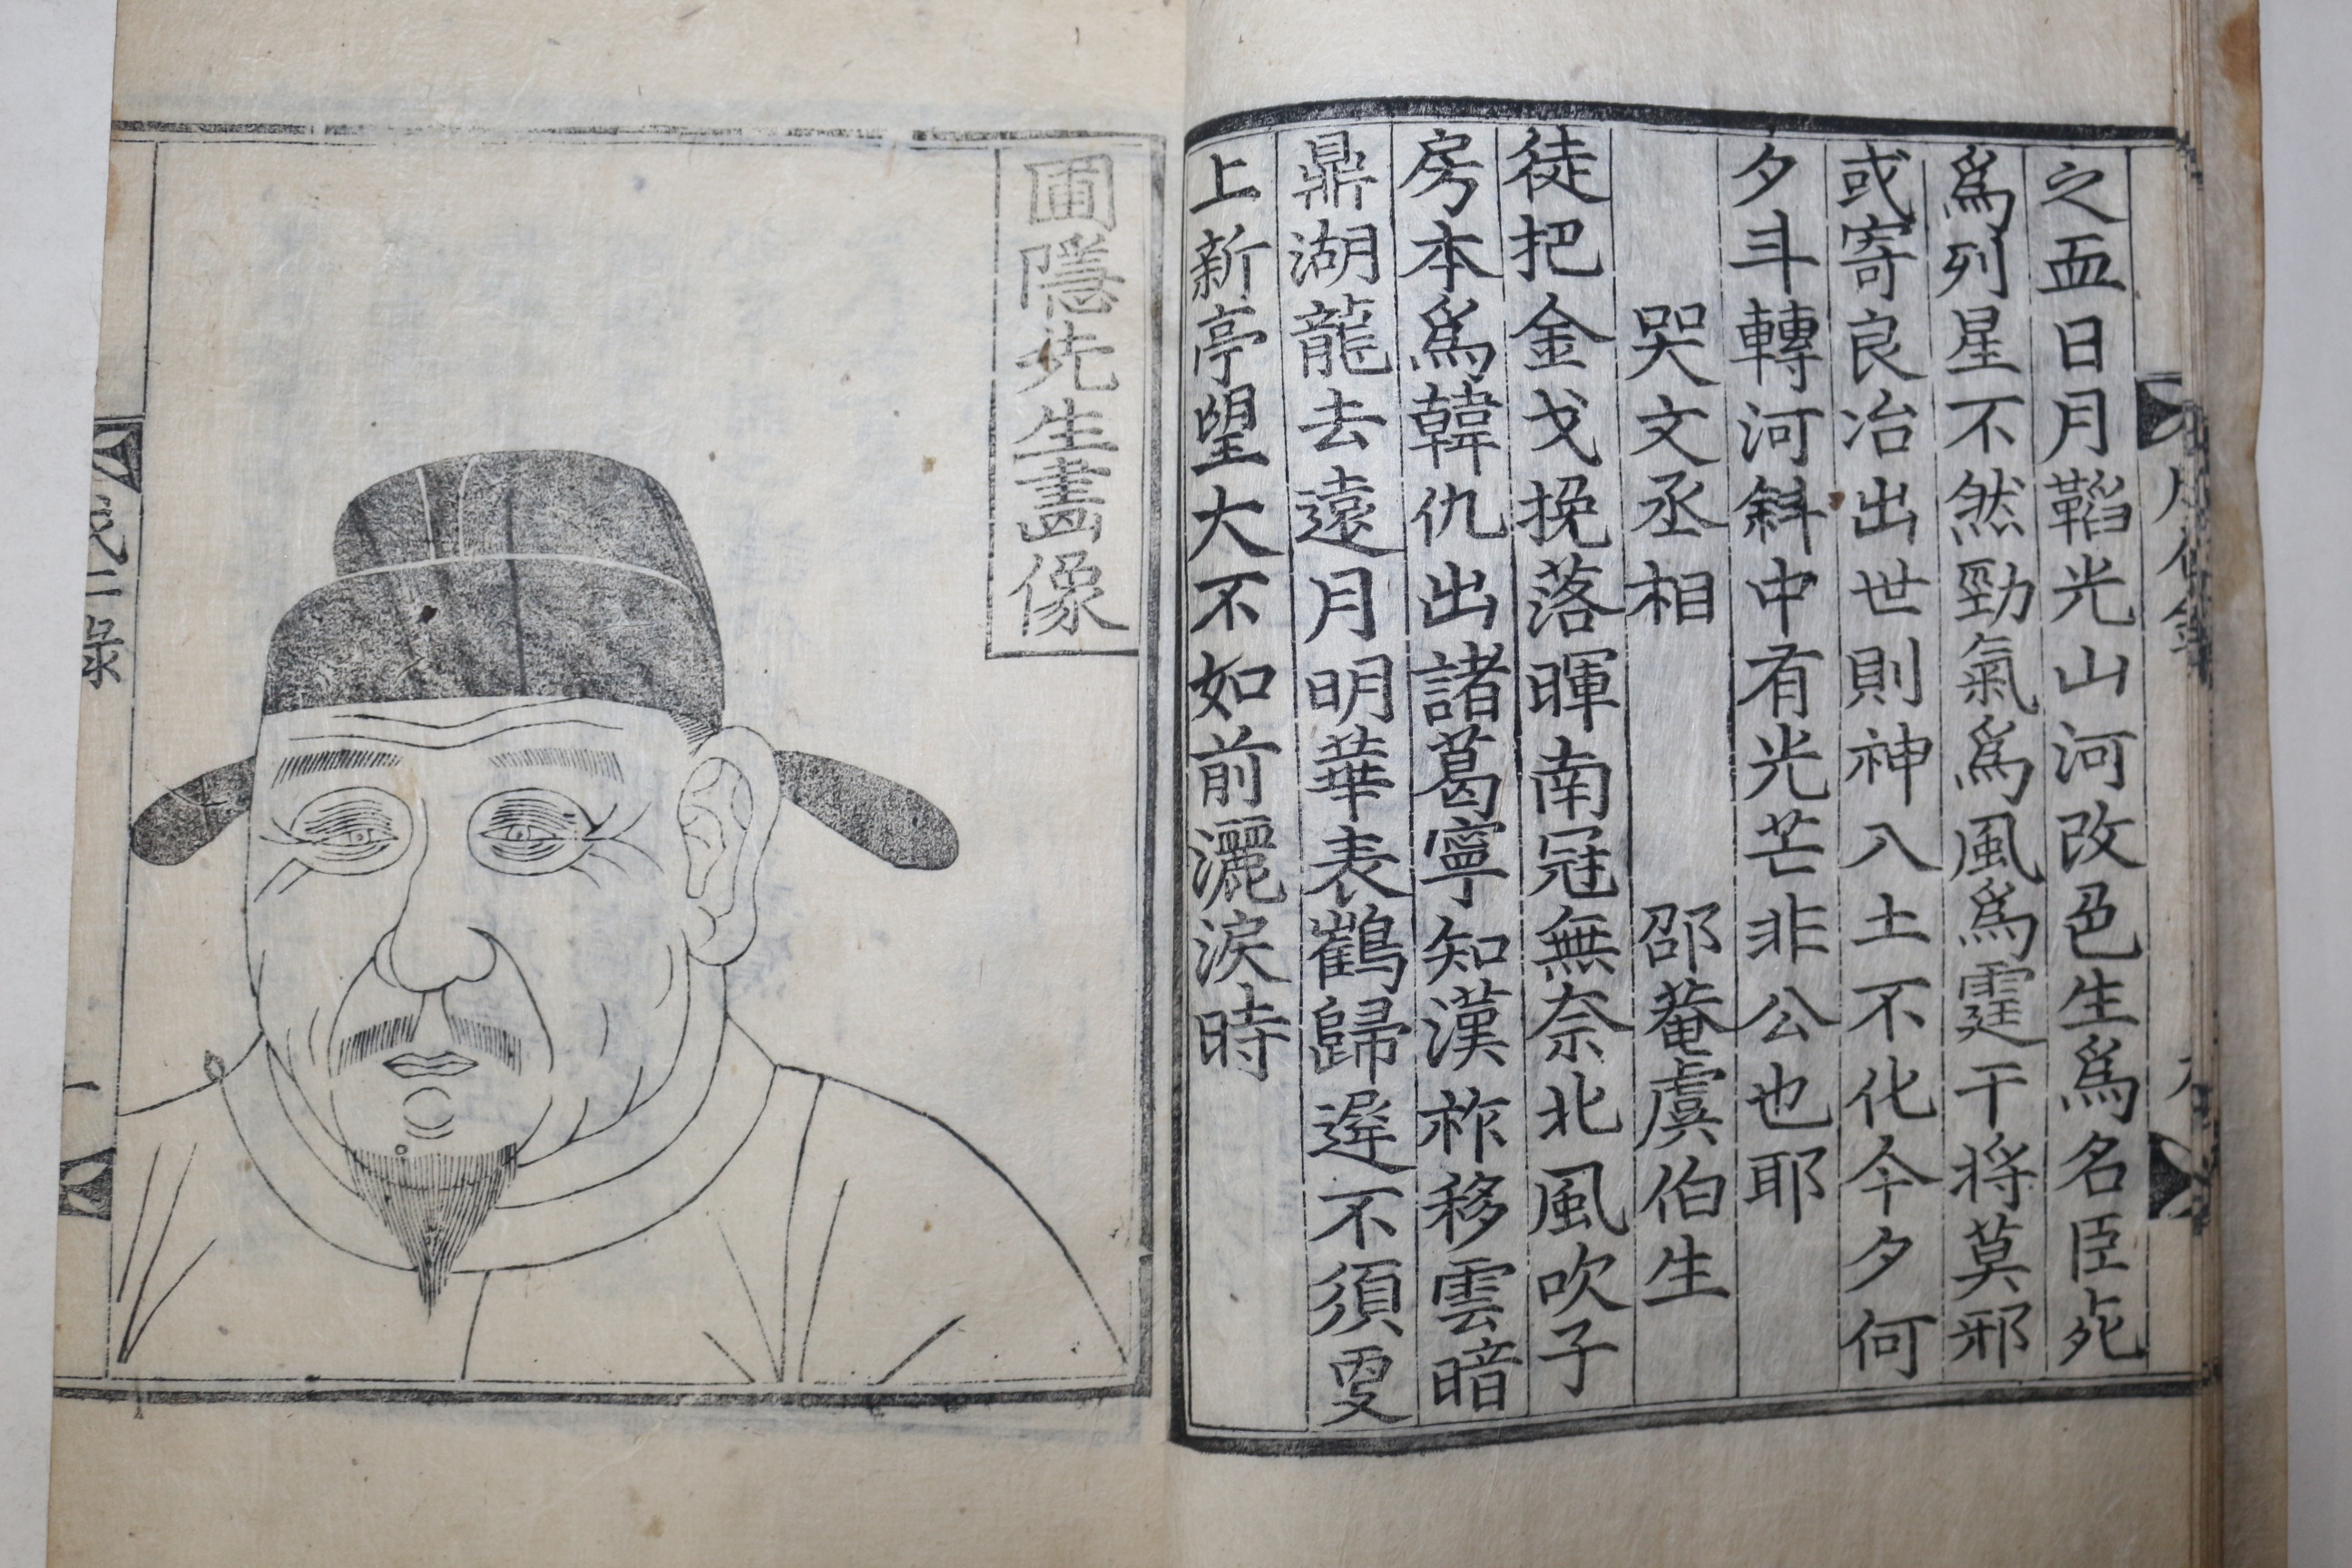 之血日月韜光山河改色生爲名臣死
爲列星不然勁氣爲風爲霆干將莫邪
或寄良冶出世則神入土不化今夕何
夕斗轉河斜中有光芒非公也耶
哭文丞相 邵菴虞伯生
徒把金戈挽落暉南冠無奈北風吹子
房本爲韓仇出諸葛寧知漢祚移雲暗
鼎湖龍去遠月明華表鶴歸遲不須更
上新亭望大不如前灑淚時
圃隱先生畵像